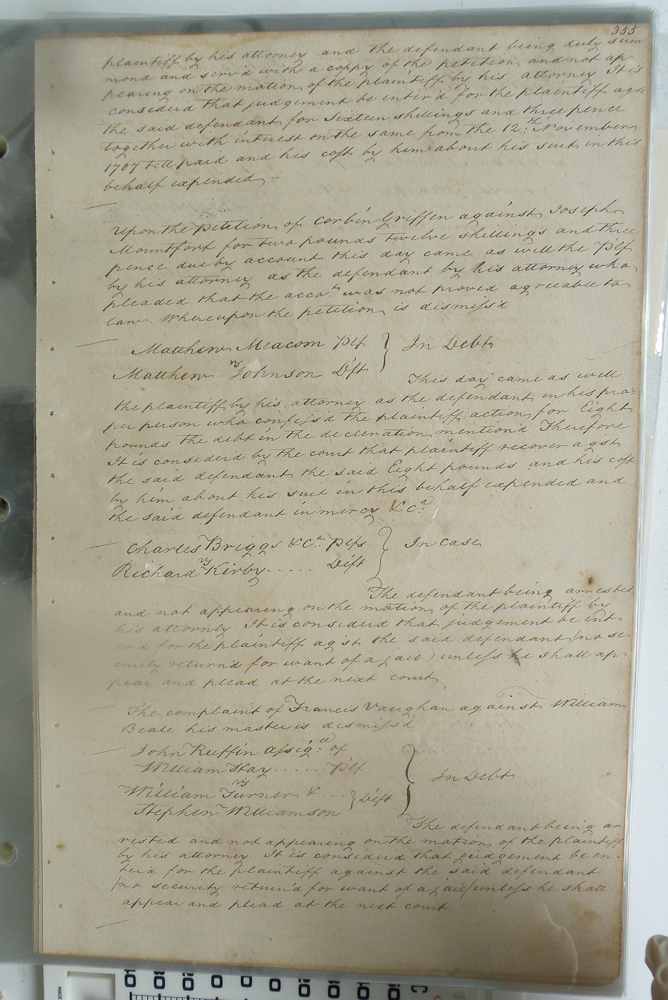 355
plaintiff by his attorney and the defendant being duly sum
mond and serv'd with a coppy of the petition, and not ap
pearing on the motion of the plaintiff by his attorney It is
considerd that judgement be enter'd for the plaintiff agst
the said defendant for sixteen shillings and three pence
together with interest on the same from the 12th November
1767 till paid and his cost by him about his suit in this
behalf expended
Upon the Petition of Corbin Griffen against Joseph
Mountfort for two pounds twelve shillings and three
pence due by account this day came as well the Plf
by his attorney as the defendant by his attorney who
pleaded that the acco.t was not proved agreeable to
law. Whereupon the petition is dismiss'd
Matthew Meacom Plf } In Debt
vs
Matthew Johnson Dift
This day came as well
the plaintiff by his attorney as the defendant in his pro-
per person who confess'd the plaintiff action, for Eight
pounds the debt in the declaration mention'd Therefore
It is considerd by the court that plaintiff recover agst
the said defendant the said Eight pounds and his cost
by him about his suit in this behalf expended and
the said defendant in mercy &c.a
Charles Briggs &c.a Plfs } In case
vs
Richard Kirby..... Dift
The defendant being arrested
and not appearing on the motion of the plaintiff by
his attorney It is considerd that judgement be int-
er'd for the plaintiff agst the said defendant (no se-
curity return'd for want of a jail) unless he shall ap-
pear and plead at the next court
The complaint of Francis Vaughan against William
Beale his master is dismiss'd
John Ruffin assig.e of
William Hay...... Plf } In Debt
vs
William Turner &... } Dift
Stephen Williamson
The defendant being ar
rested and not appearing on the motion, of the plaintiff
by his attorney It is considerd that judgement be en-
ter'd for the plaintiff against the said defendant
(no security return'd for want of a jail) unless he shall
appear and plead at the next court